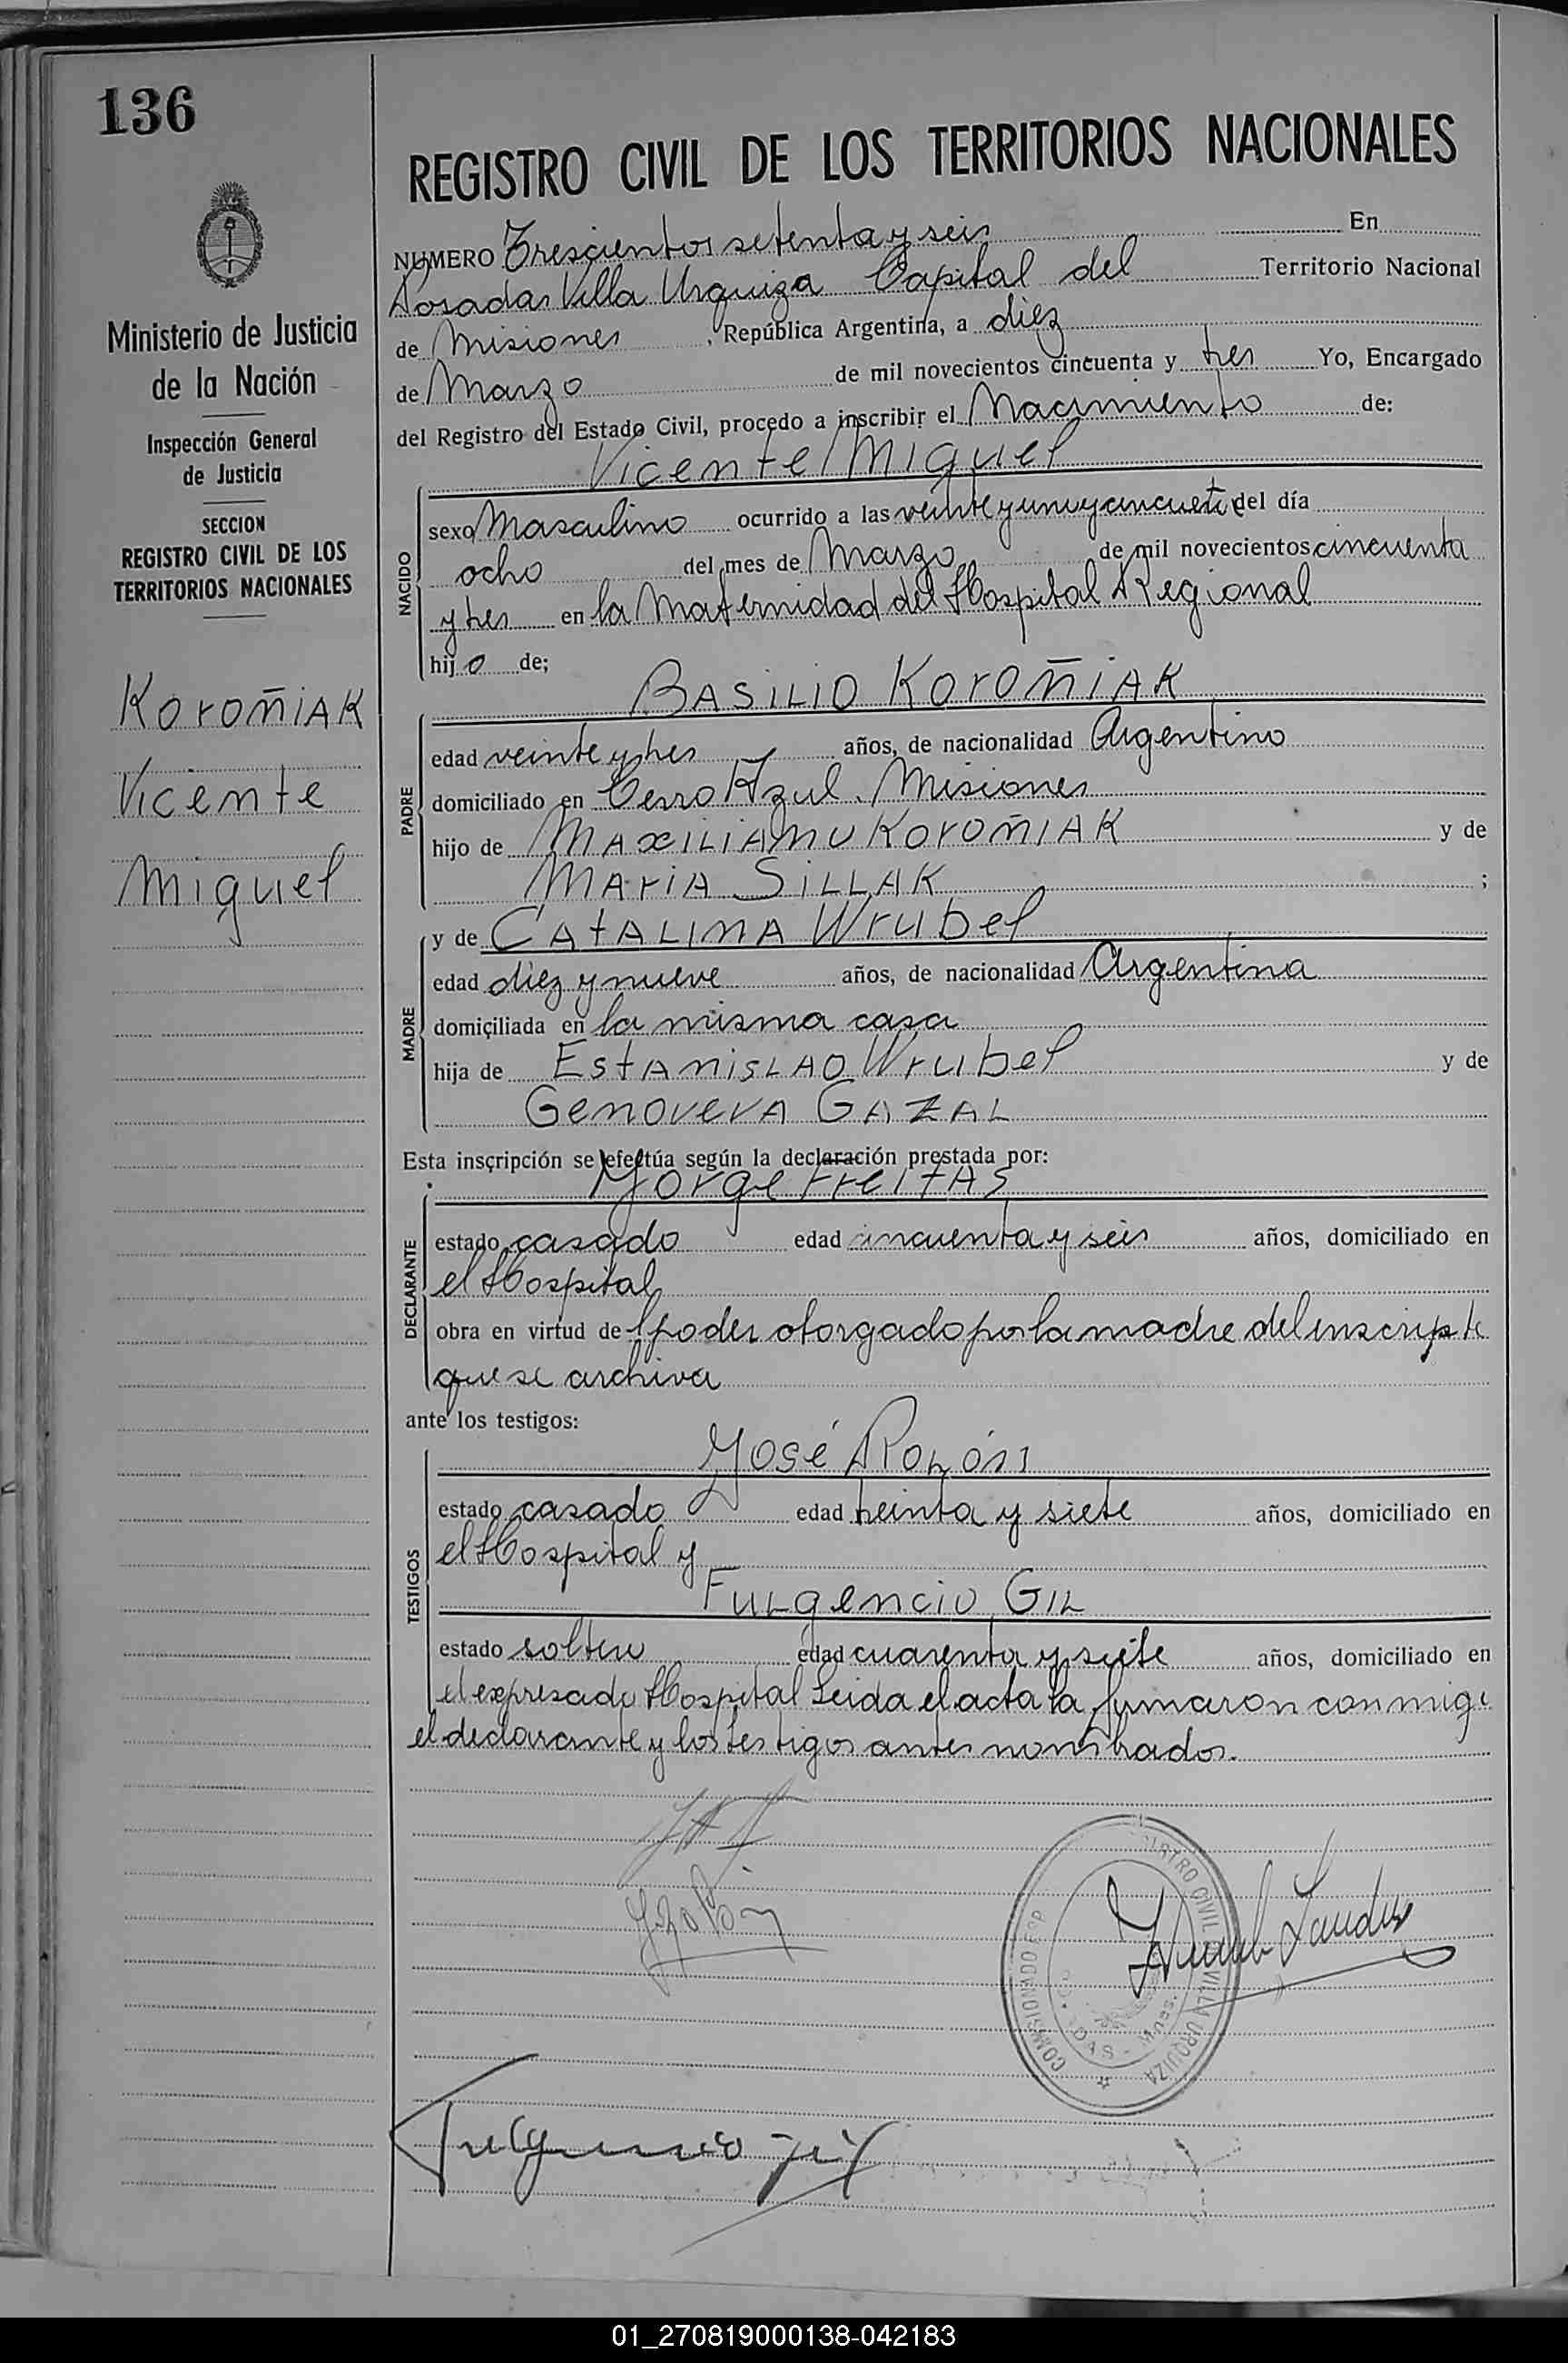 136
Ministerio de Justicia
de la Nación
Inspección General
de Justicia
SECCION
REGISTRO CIVIL DE LOS
TERRITORIOS NACIONALES
Koroñiak
Vicente
Miguel
REGISTRO CIVIL DE LOS TERRITORIOS NACIONALES
NUMERO Trescientos setenta y seis En
Posadas Villa Urquiza Capital del Territorio Nacional
de Misiones, República Argentina, a diez
de Marzo de mil novecientos cincuenta y tres Yo, Encargado
del Registro del Estado Civil, procedo a inscribir el Nacimiento de:
Vicente Miguel
NACIDO
sexo Masculino ocurrido a las veinte y una y cincuenta del día
ocho del mes de Marzo de mil novecientos cincuenta
y tres en la Maternidad del Hospital Regional
hijo de;
BASILIO KOROÑIAK
PADRE
edad veinte y tres años, de nacionalidad Argentino
domiciliado en Cerro Azul. Misiones
hijo de MAXILIAMO KOROÑIAK y de
MARIA SILLAK ;
y de CATALINA Wrubel
MADRE
edad diez y nueve años, de nacionalidad Argentina
domiciliada en la misma casa
hija de ESTANISLAO Wrubel y de
GENOVEVA GAZAL
Esta inscripción se efectúa según la declaración prestada por:
Jorge FREITAS
DECLARANTE
estado casado edad cincuenta y seis años, domiciliado en
el Hospital
obra en virtud de poder otorgado por la madre del inscripto
que se archiva
ante los testigos:
José
TESTIGOS
estado casado edad treinta y siete años, domiciliado en
el Hospital y
FULGENCIO GIL
estado soltero edad cuarenta y siete años, domiciliado en
el expresado Hospital Leida el acta la firmaron conmigo
el declarante y los testigos antes nombrados.
COMISIONADO ESP REGISTRO CIVIL VILLA URQUIZA
Fulgencio Gil
01_270819000138-042183